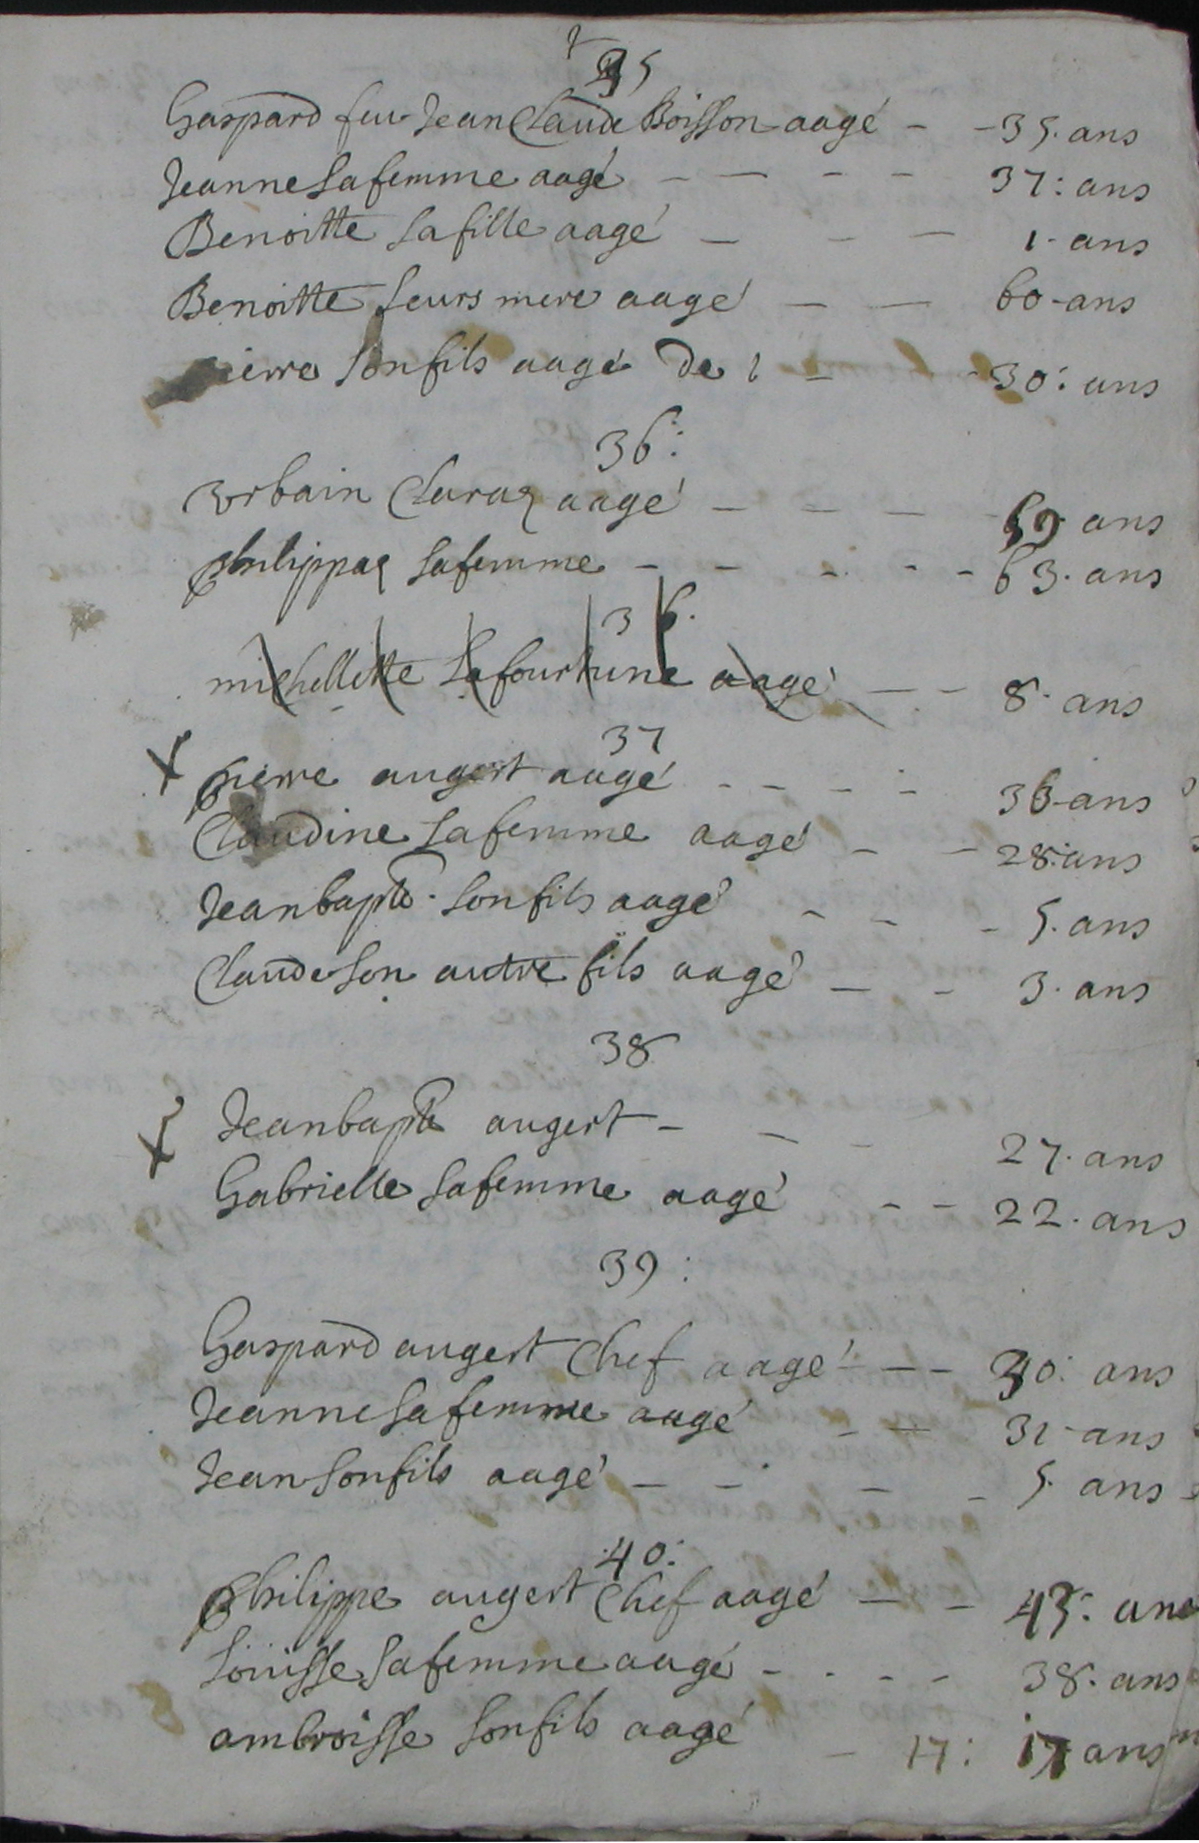 35
Gaspard feu Jean Claude Boisson aagé - - 35. ans
Jeanne sa femme aagé - - - - 37: ans
Benoitte sa fille aagé - - - 1. ans
Benoitte leurs mere aagé - - 60 - ans
ierre son fils aagé de - - 30: ans
36:
Vrbain aagé - - - - 59 ans
sa femme - - - - - 63. ans
36.
michellette Lafourtune aagé - - 8. ans
37
pierre augert aagé - - - - 36 - ans
Claudine sa femme aagé - - 28: ans
Jean bapte. son fils aagé - - - 5. ans
Claude son autre fils aagé - - 3. ans
38
Jean bapte augert - - - 27. ans
Gabrielle sa femme aagé - - 22. ans
39:
Gaspard augert Chef aagé - - 30: ans
Jeanne sa femme aagé - - 31 - ans
Jean son fils aagé - - - - 5. ans
40:
philippe augert Chef aagé - - 45: ans
Loüisse sa femme aagé - - - - 38. ans
ambroisse son fils aagé - 17: 17 ans